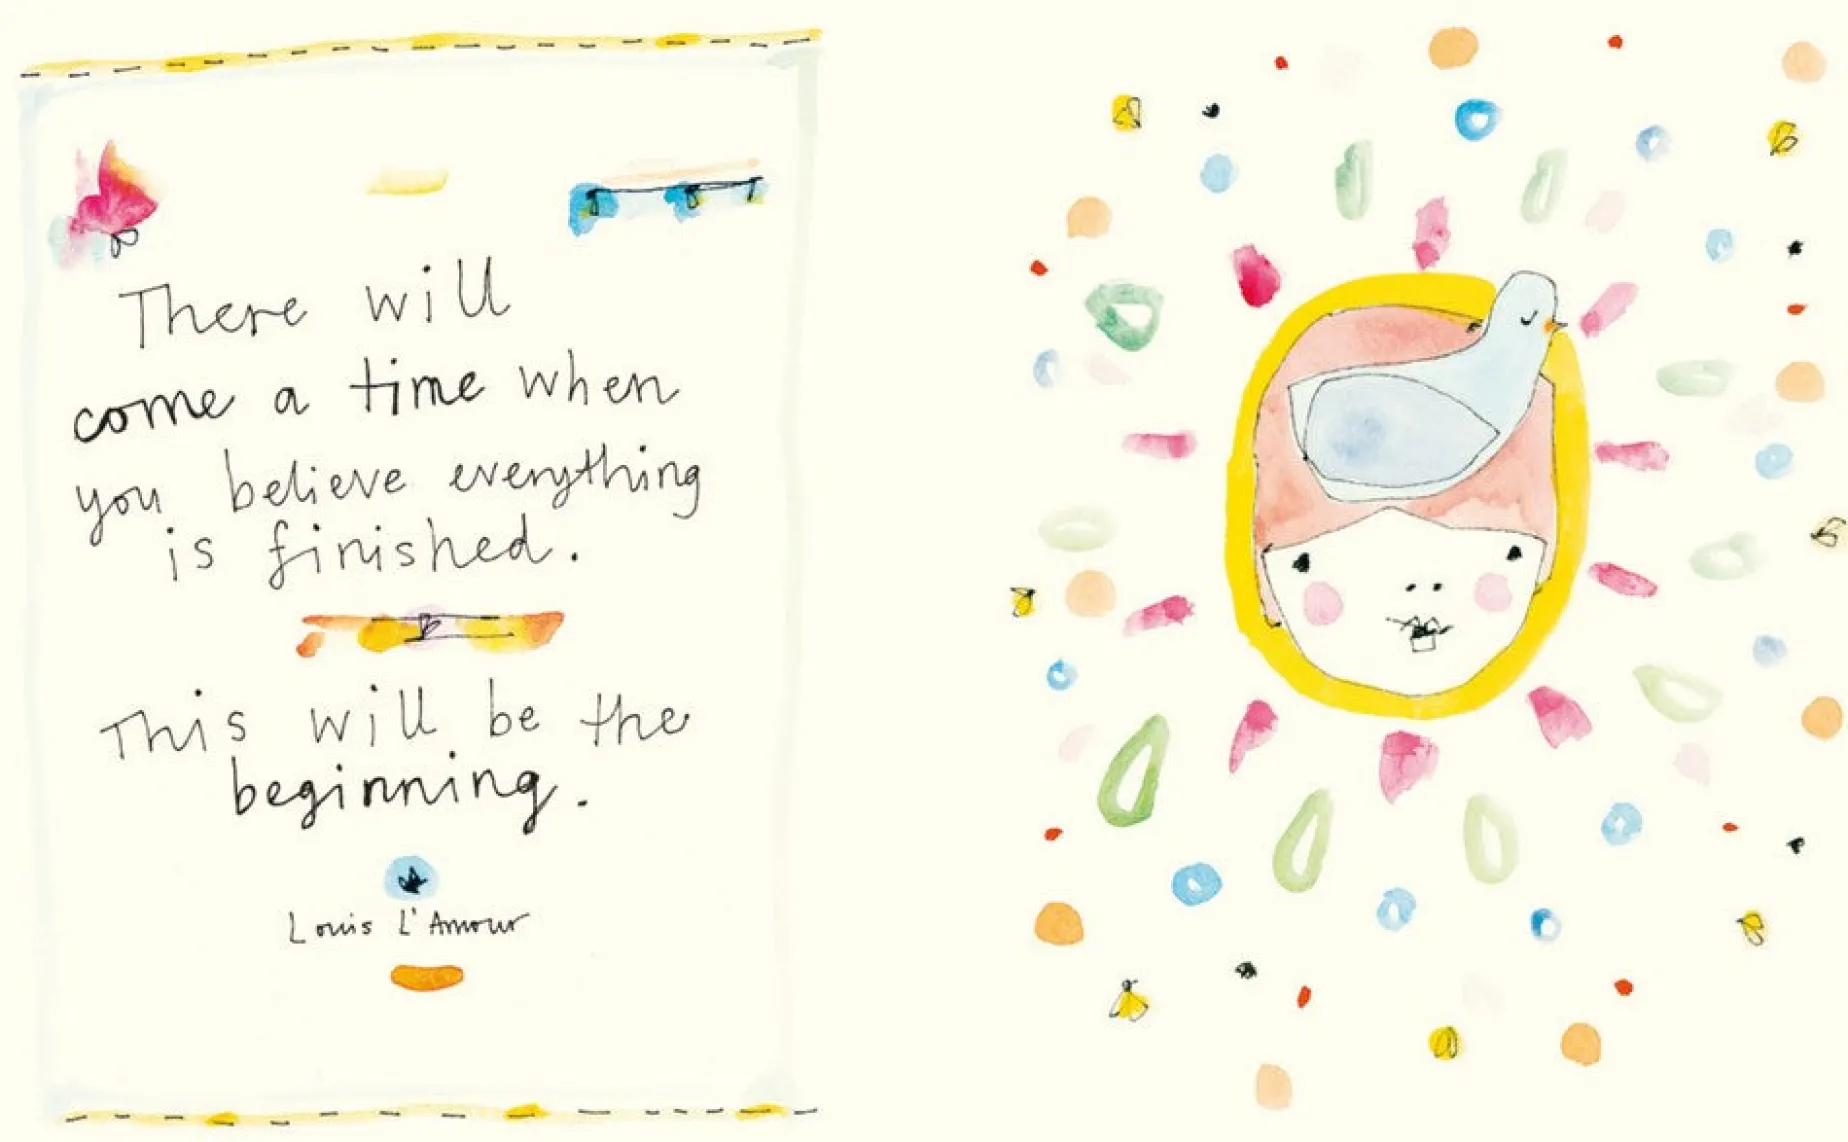 There will
come a time when
you believe everything
is finished.
This will be the
beginning.
Louis L'Amour